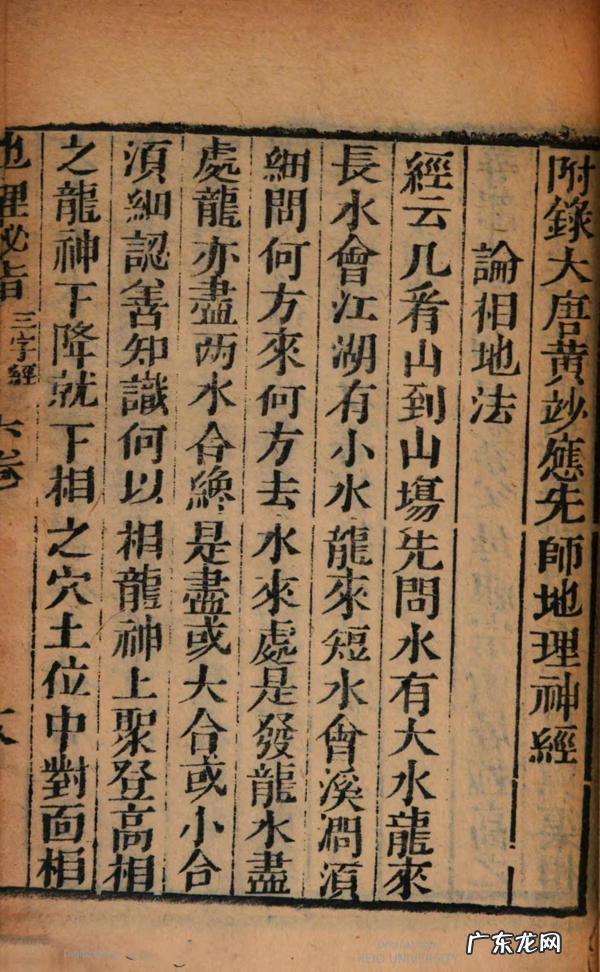 附錄大唐黃竗應先師地理神經
論相地法
經云凢看山到山塲先問水有大水龍來
長水會江湖有小水龍來短水會溪澗須
細問何方來何方去水來處是發龍水盡
處龍亦盡两水合緣是盡或大合或小合
須細認善知識何以相龍神上聚登高相
之龍神下降就下相之穴土位中對面相
地理秘旨 三字經 六卷
广东龙网
KEIO UNIVERSITY